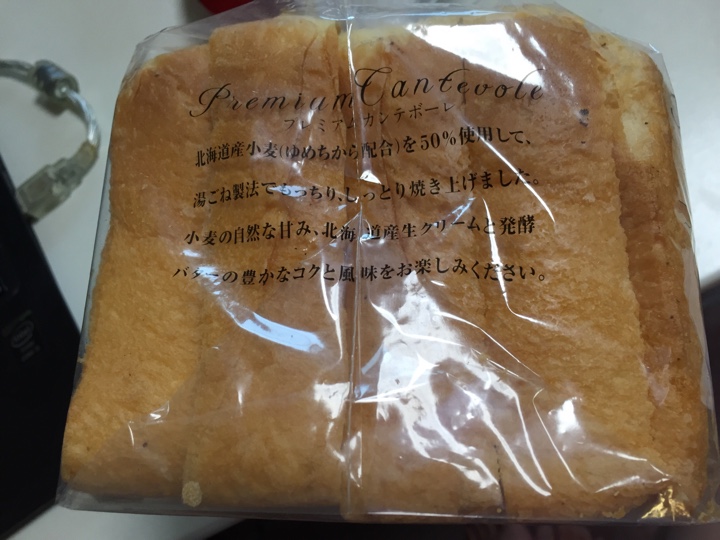 Premium Cantevole
プレミアムカンテボーレ
北海道産小麦(ゆめちから配合)を50%使用して、
湯ごね製法でもっちり、しっとり焼き上げました。
小麦の自然な甘み、北海道産生クリームと発酵
バターの豊かなコクと風味をお楽しみください。